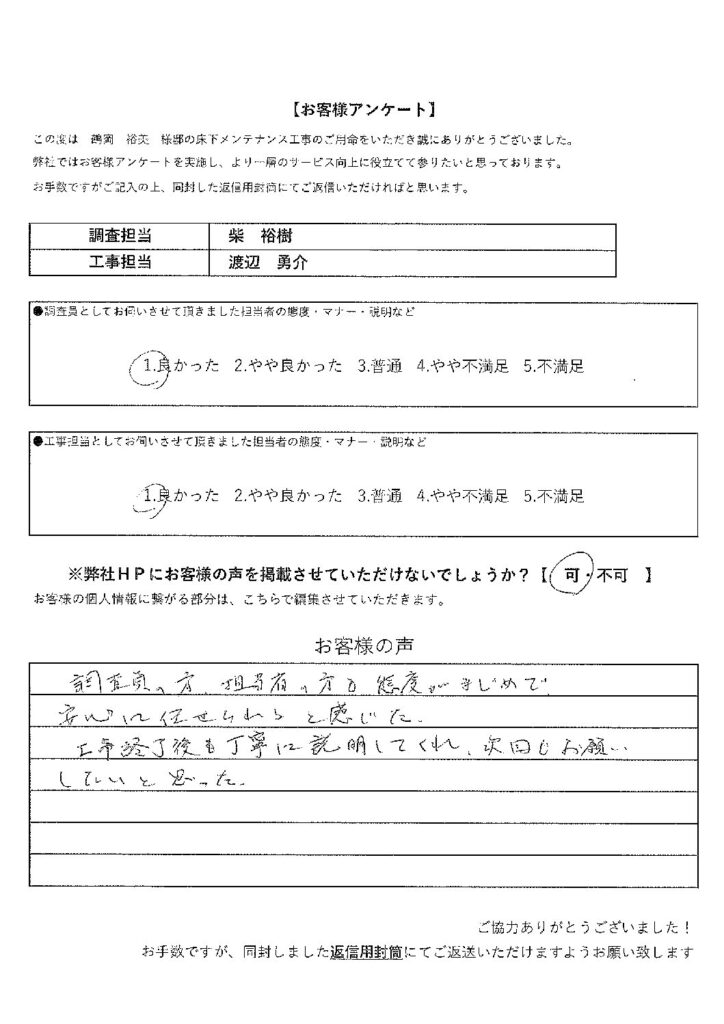 【お客様アンケート】
この度は 鶴岡 裕美 様邸の床下メンテナンス工事のご用命をいただき誠にありがとうございました。
弊社ではお客様アンケートを実施し、より一層のサービス向上に役立てて参りたいと思っております。
お手数ですがご記入の上、同封した返信用封筒にてご返信いただければと思います。
調査担当 柴 裕樹
工事担当 渡辺 勇介
●調査員としてお伺いさせて頂きました担当者の態度・マナー・説明など
1.良かった 2.やや良かった 3.普通 4.やや不満足 5.不満足
●工事担当としてお伺いさせて頂きました担当者の態度・マナー・説明など
1.良かった 2.やや良かった 3.普通 4.やや不満足 5.不満足
※弊社ＨＰにお客様の声を掲載させていただけないでしょうか？【 可・不可 】
お客様の個人情報に繋がる部分は、こちらで編集させていただきます。
お客様の声
調査員の方、担当者の方も態度がまじめで
安心に任せられると感じた。
工事終了後も丁寧に説明してくれ、次回もお願い
したいと思った。
ご協力ありがとうございました！
お手数ですが、同封しました返信用封筒にてご返送いただけますようお願い致します